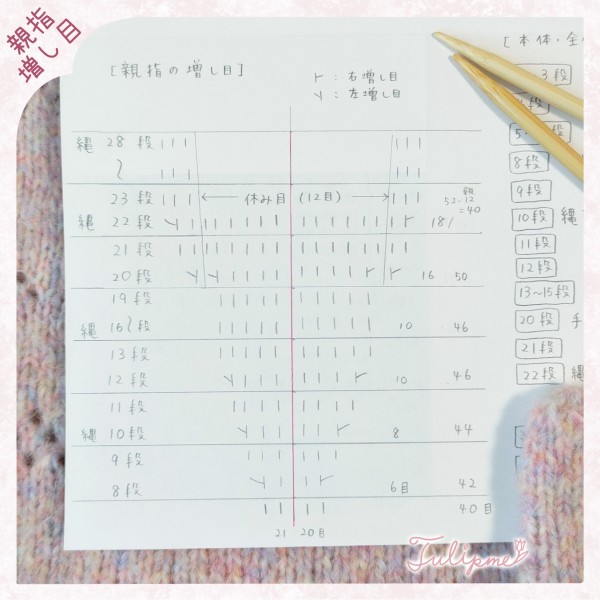 親指
増し目
[親指の増し目]
ト : 右増し目
Y : 左増し目
縄 28段
〜
23段 ← 休み目 (12目) →
52-12
=40
縄 22段 18
21段
20段 16 50
19段
縄 16〜段 10 46
13段
12段 10 46
11段
縄 10段 8 44
9段
8段 6目 42
40目
21 20目
[本体・全
3段
8段
9段
10段 縄
11段
12段
13〜15段
20段 手
21段
22段 縄
Tulipme